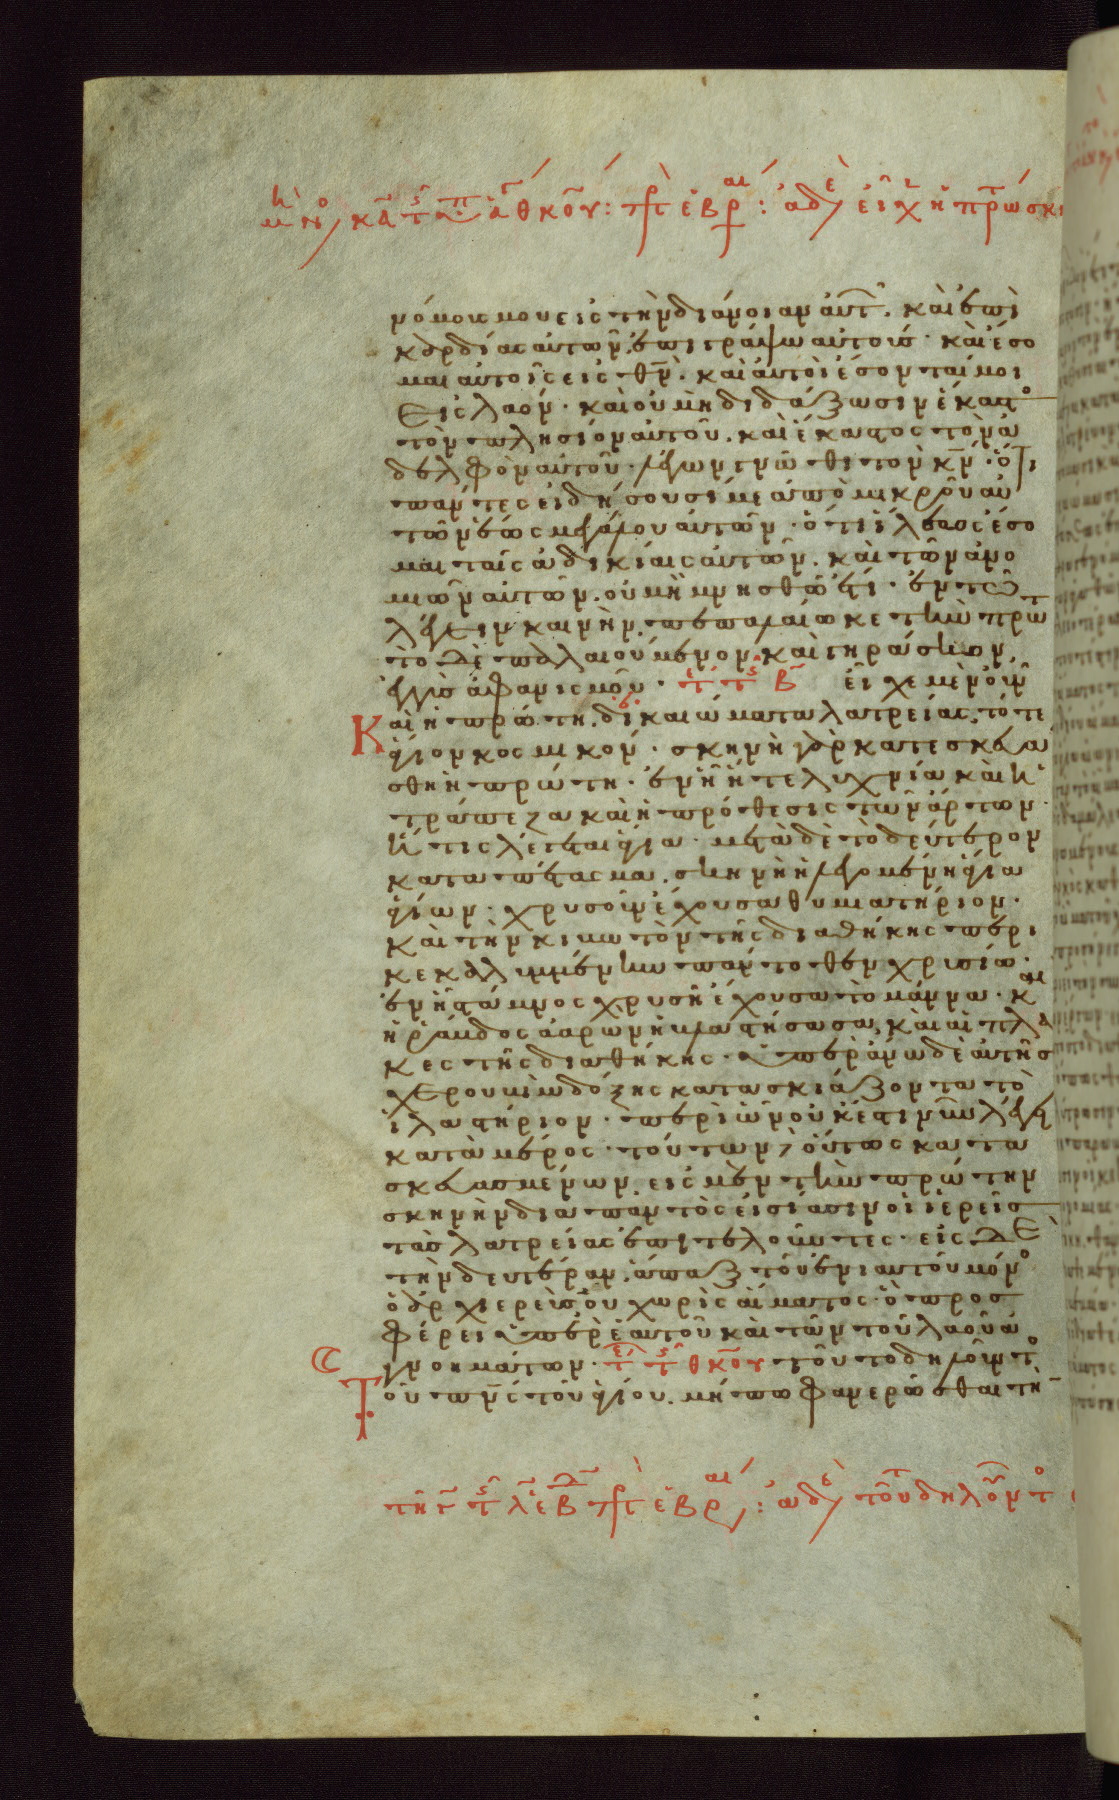 νόμους μου εἰς τὴν διάνοιαν αὐτ, καὶ ἐπὶ
καρδίας αὐτῶν ἐπιγράψω αὐτούσ· καὶ ἔσο
μαι αὐτοῖς εἰς θν̄· καὶ αὐτοὶ ἔσονταί μοι
εἰς λαόν· καὶ οὐ μὴ διδάξωσιν ἕκαστο
τὸν πλησίον αὐτοῦ. καὶ ἕκαστος τὸν ἀ
δελφὸν αὐτοῦ· λέγων γνῶθι τὸν κν̄· ὅτι
πάντες εἰδήσουσί με ἀπὸ μικροῦ αὐ
τῶν ἕως μεγάλου αὐτῶν· ὅτι ἵλεως ἔσο
μαι ταῖς ἀδικίαις αὐτῶν. καὶ τῶν ἀνο
μιῶν αὐτῶν. οὐ μὴ μνησθῶ ἔτι· ἐν τῶ
λέγειν καινὴν πεπαλαίωκε τὴν πρώτ
τὸ δὲ παλαιούμενον καὶ γηράσκον,
ἐγγὺσ ἀφανισμοῦ· εἶχε μὲν οὖν
Καὶ ἡ πρώτη, δικαιώματα λατρείας, τό τε
ἅγιον κοσμικόν· σκηνὴ γὰρ κατεσκευά
σθη ἡ πρώτη· ἐν ἧ ἥ τε λυχνία καὶ ἡ
τράπεζα καὶ ἡ πρόθεσις τῶν ἄρτων·
ἥτις λέγεται ἅγια· μετὰ δὲ τὸ δεύτερον
καταπέτασμα, σκηνὴ ἡ λεγομένη ἅγια
ἁγίων· χρυσοῦν ἔχουσα θυμιατήριον·
καὶ τὴν κιβωτὸν τῆς διαθήκης περι
κεκαλυμμένην πάντοθεν χρυσίω·
ἐν ἧ στάμνος χρυσῆ ἔχουσα τὸ μάννα· κ
ἡ ῥάβδος ἀαρὼν ἡ βλαστήσασα, καὶ αἱ πλά
κες τῆς διαθήκης· ὑπεράνω δὲ αὐτῆσ
χερουβὶμ δόξης κατασκιάζοντα τὸ
ἱλαστήριον· περὶ ὧν οὐκ ἔστι νῦν λέγειν
κατὰ μέρος· τούτων, οὕτως κατε
σκευασμένων, εἰς μὲν τὴν πρώτην
σκηνὴν διὰ παντὸς εἰσίασιν οἱ ἱερεῖσ
τὰσ λατρείας ἐπιτελοῦντες· εἰς δὲ
τὴν δευτέραν, ἅπαξ τοῦ ἐνιαυτοῦ μόνο
ὁ ἀρχιερεὺσ οὐ χωρὶς αἵματος· ὃ προσ
φέρει ὑπὲρ ἑαυτοῦ καὶ τῶν τοῦ λαοῦ ἀ
γνοημάτων· τοῦτο δηλοῦντο
Τοῦ πνς τοῦ ἁγίου, μήπω φανερῶσθαι τὴν